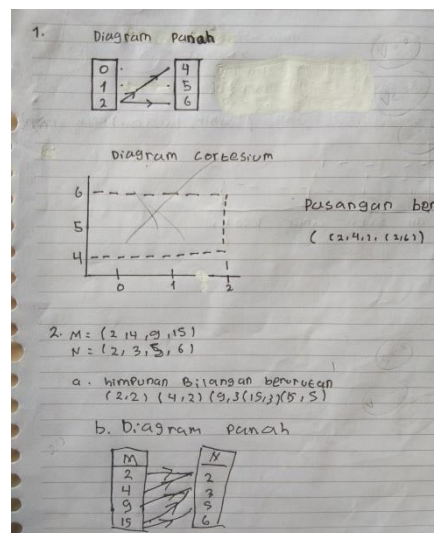 1. Diagram panah
0 4
1 5
2 6
Diagram cortesium
6
5
4
0 1 2
Pasangan ber
( (2,4,), (2,6))
2. M = (2,4,9,15)
N = (2, 3, 5, 6)
a. himpunan Bilangan berurutan
(2,2) (4,2) (9,3(15,3)(15,5)
b. Diagram panah
M N
2 2
4 3
9 5
15 6